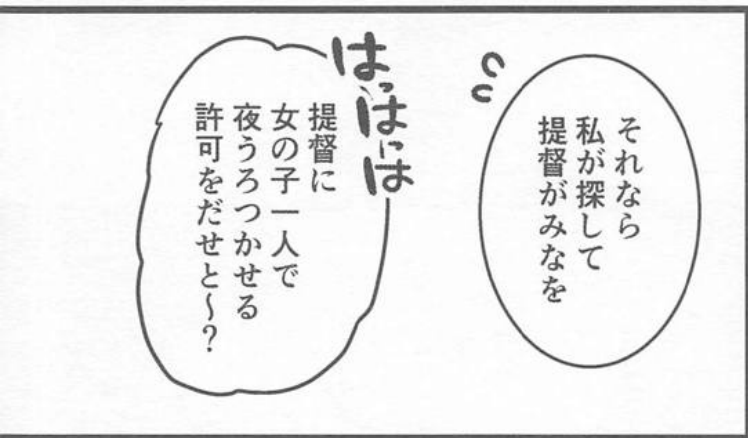 それなら
私が探して
提督がみなを
はっはには
提督に
女の子一人で
夜うろつかせる
許可をだせと～？